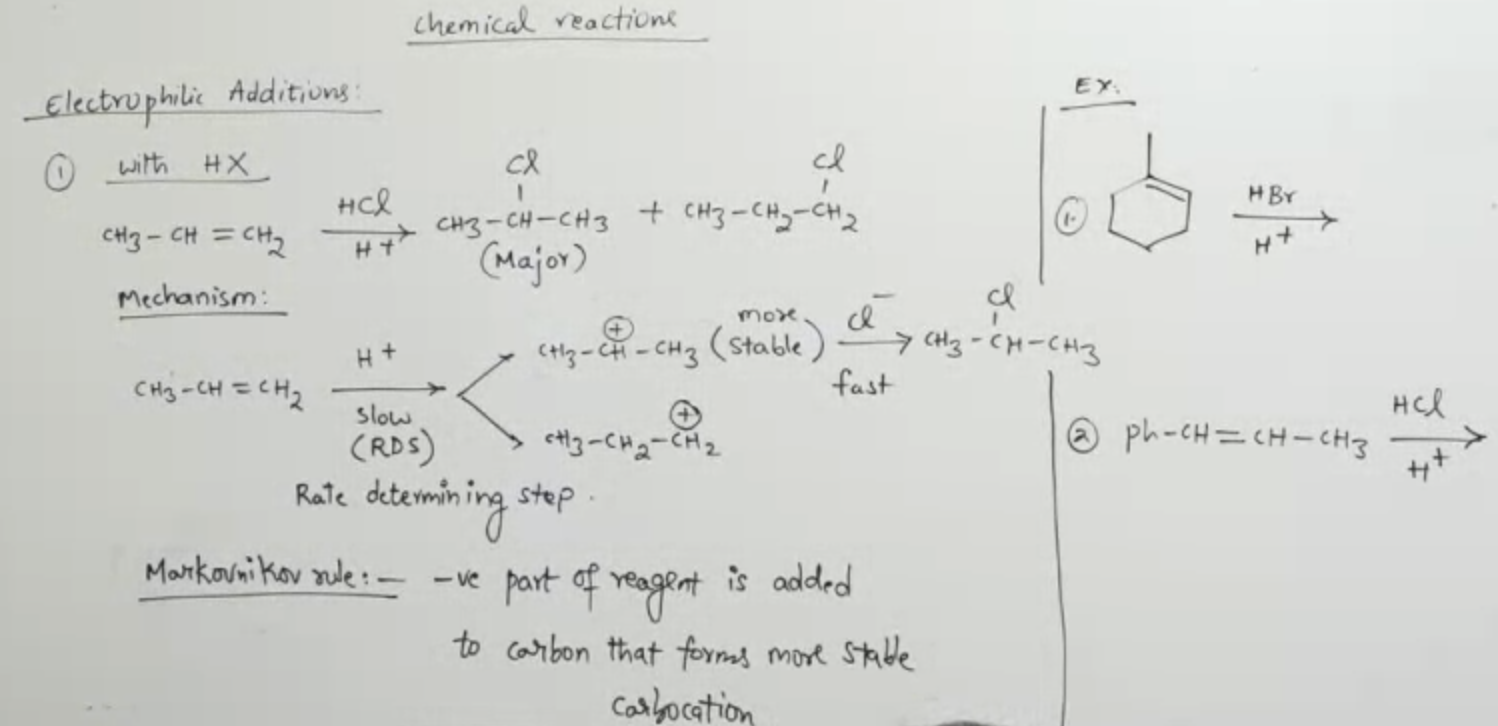 Chemical reactions
Electrophilic Additions:
① with HX
CH3-CH=CH2 HCl H+ → Cl CH3-CH-CH3 (Major) + Cl CH3-CH2-CH2
Mechanism:
CH3-CH=CH2 H+ → slow (RDS)
CH3-CH-CH3 ⊕ (more stable) Cl- → fast Cl CH3-CH-CH3
CH3-CH2-CH2 ⊕
Rate determining step.
Markovnikov rule:- -ve part of reagent is added
to carbon that forms more stable
carbocation
Ex.
①. HBr → H+
② ph-CH=CH-CH3 HCl → H+